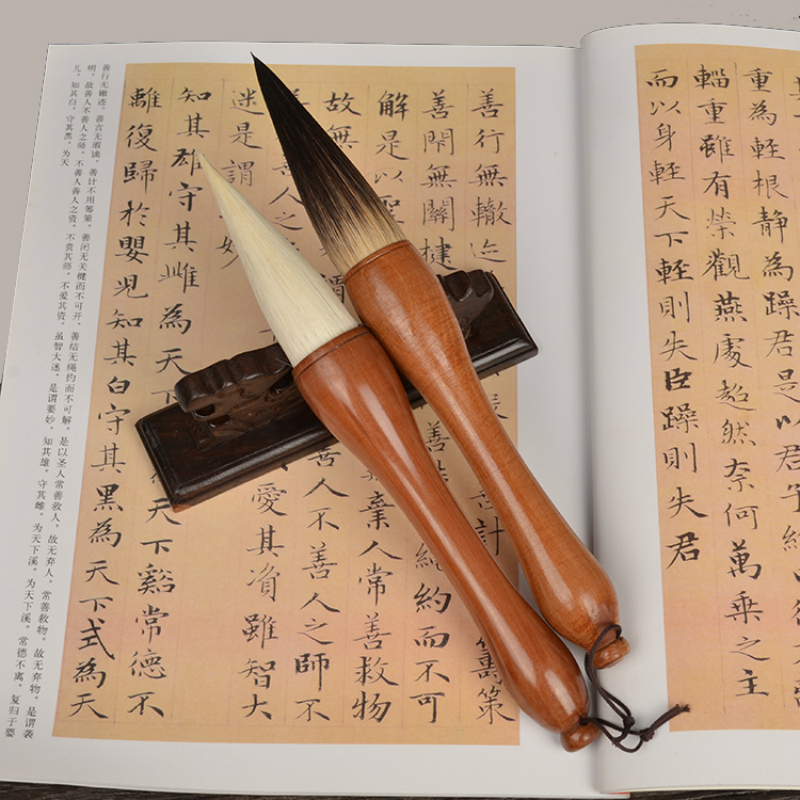 重為輕根靜為躁君是以君子終
輜重雖有榮觀燕處超然奈何萬乘之主
而以身輕天下輕則失臣躁則失君
善行無轍迹 計 籌策
善閇無關楗 善 約而不可
解是以聖 棄人常善救物
故無 善人不善人之師不
善人之 愛其資雖智大
迷是謂 妙
知其雄守其雌為天下谿常德不
離復歸於嬰児知其白守其黑為天下式為天
善行无辙迹，善言无瑕谪，善计不用筹策，善闭无关楗而不可开，善结无绳约而不可解。是以圣人常善救人，故无弃人，常善救物，故无弃物，是谓袭
明。故善人不善人之师，不善人善人之资。不贵其师，不爱其资，虽智大迷，是谓要妙。知其雄，守其雌，为天下溪。为天下溪，常德不离，复归于婴
儿。知其白，守其黑，为天